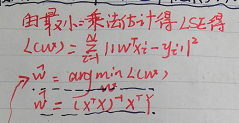 由最小二乘法估计得LSE得
L(w) = Σ_{i=1}^{N} ||w^T x_i - y_i||^2
w⃗ = argmin_w L(w)
w⃗ = (x^T x)^{-1} x^T Y